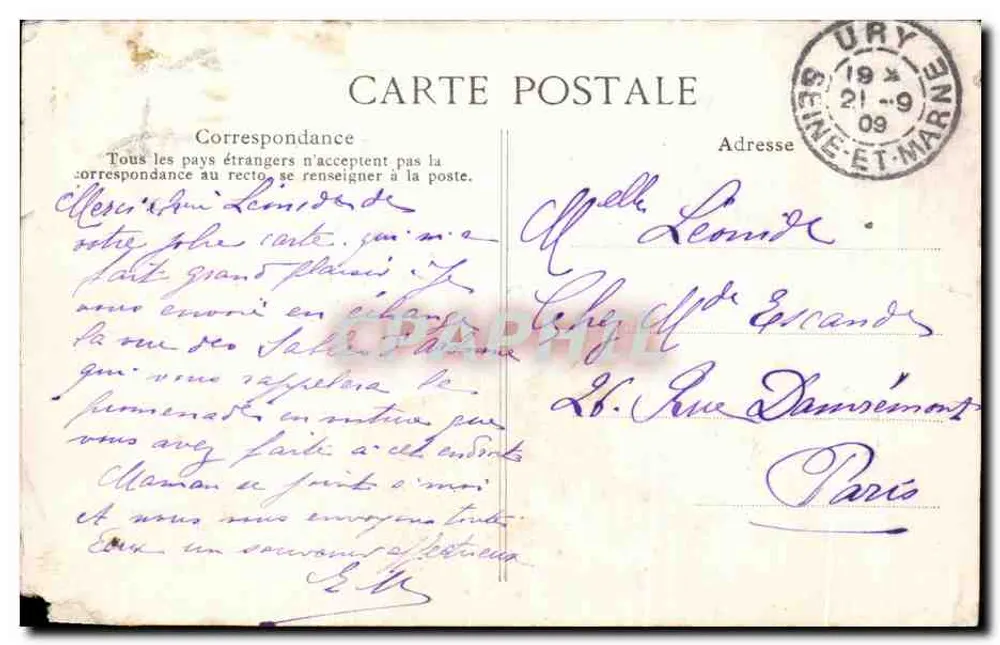 CARTE POSTALE
Correspondance
Tous les pays étrangers n'acceptent pas la
correspondance au recto, se renseigner à la poste.
Adresse
URY
SEINE-ET-MARNE
19
21 -9
09
Merci Léonide de
votre jolie carte qui m'a
fait grand plaisir. Je
vous envoie en échange
la vue des Sables d'
qui vous rappelera la
promenade en voiture que
vous avez faite à cet endroit
Maman se joint à moi
et nous vous envoyons toutes
deux un souvenir affectueux
Melle Léonide
Chez Mde Escande
26. Rue Damrémont
Paris
CPAPHIL